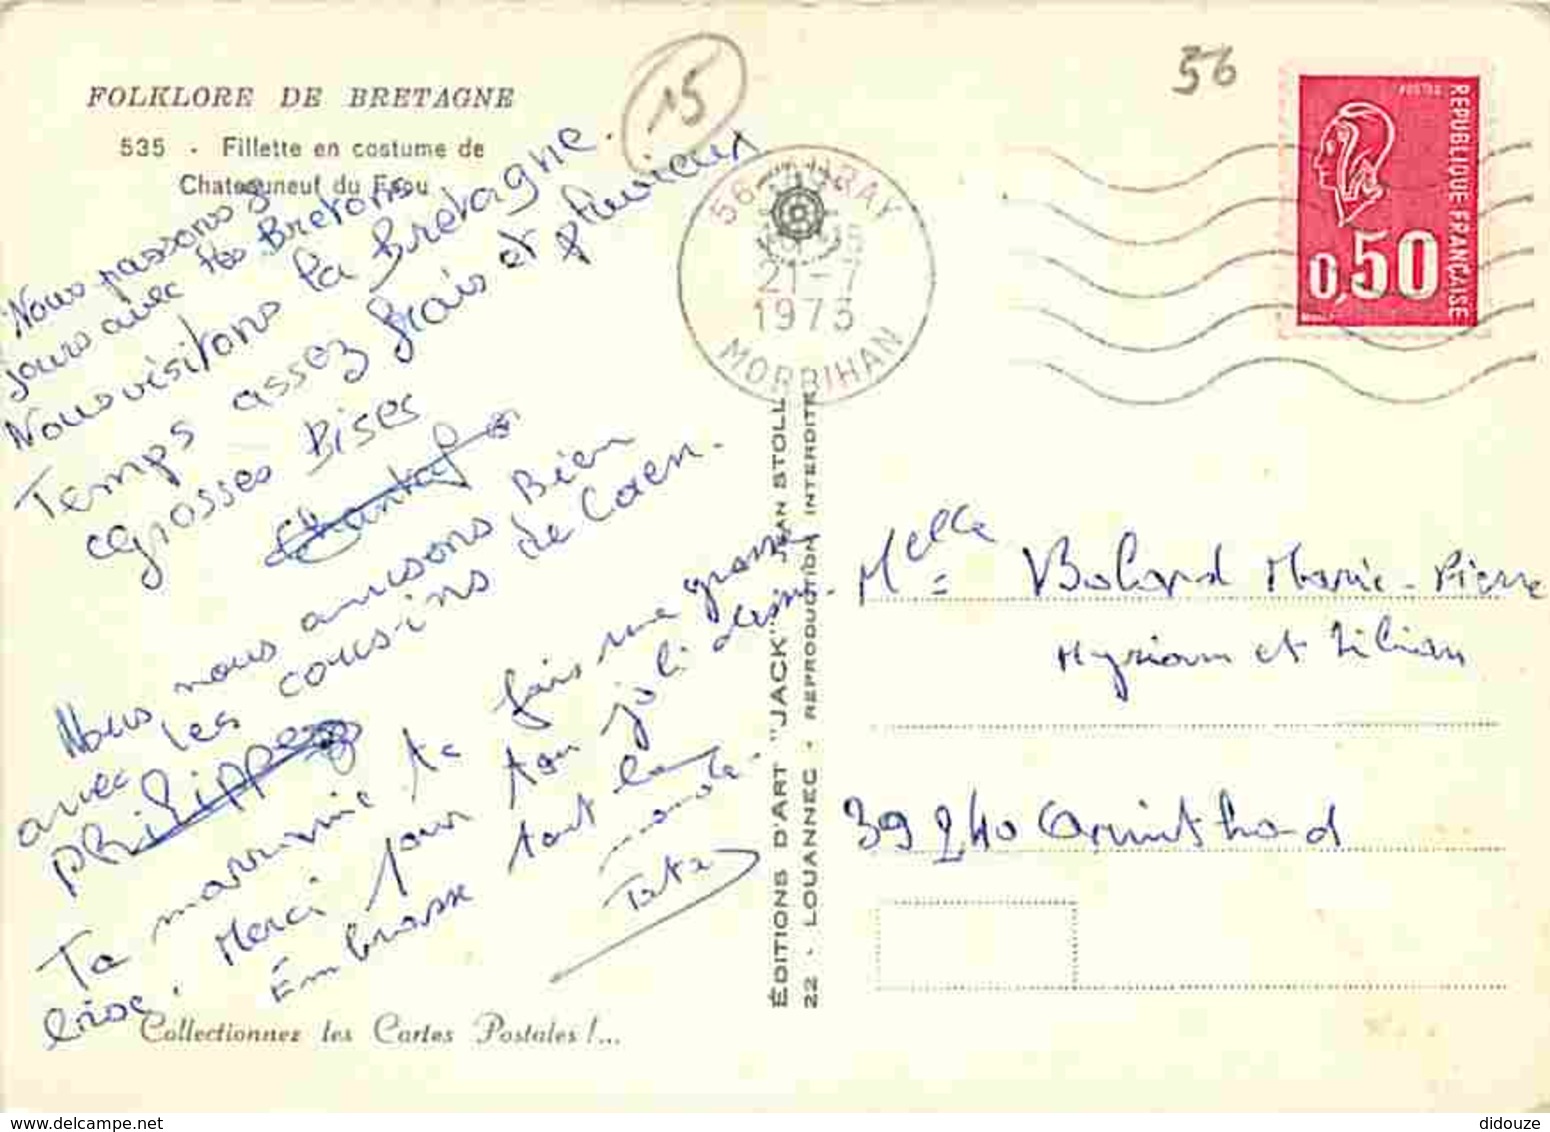 FOLKLORE DE BRETAGNE
535 - Fillette en costume de
Chateauneuf du Faou
15
56
Nous passons 9
jours avec les Bretons.
Nous visitons la Bretagne.
Temps assez frais et pluvieux
Grosses Bises
Chantal
Nous nous amusons Bien
avec les cousins de Caen.
Philippe
Ta marraine te fais une grosse
bise. Merci pour ton joli dessin.
Embrasse tout le
monde.
Tata
Collectionnez les Cartes Postales !...
ÉDITIONS D'ART "JACK" JEAN STOLL
22 - LOUANNEC - REPRODUCTION INTERDITE
56 AURAY
21-7
1975
MORBIHAN
POSTES
REPUBLIQUE FRANÇAISE
0,50
Melle Bolard Marie-Pierre
Myriam et Lilian
39240 Arinthod
didouze